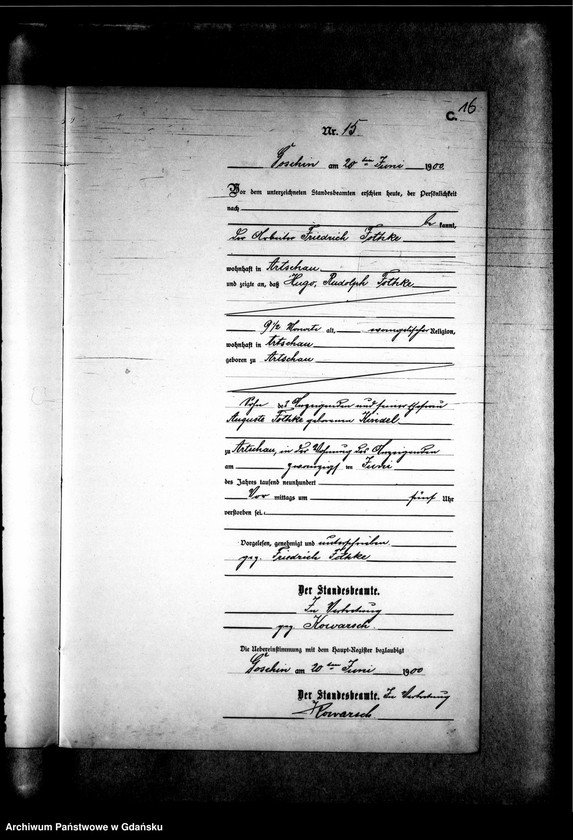 16
C.
Nr. 15
Goschin am 20ten Juni 1900.
Vor dem unterzeichneten Standesbeamten erschien heute, der Persönlichkeit
nach
be kannt,
der Arbeiter Friedrich Tothke
wohnhaft in Artschau
und zeigte an, daß Hugo, Rudolph Tothke
9½ Monate alt, evangelischer Religion,
wohnhaft in Artschau
geboren zu Artschau
Sohn des Anzeigenden und seiner Ehefrau
Auguste Tothke geborenen
zu Artschau, in der Wohnung des Anzeigenden
am zwanzigsten Juni
des Jahres tausend neunhundert
Vor mittags um fünf Uhr
verstorben sei.
Vorgelesen, genehmigt und unterschrieben
gez. Friedrich Tothke
Der Standesbeamte.
In Vertretung
gez. Kowarsch.
Die Uebereinstimmung mit dem Haupt-Register beglaubigt
Goschin am 20ten Juni 1900
Der Standesbeamte. In Vertretung
Kowarsch
Archiwum Państwowe w Gdańsku